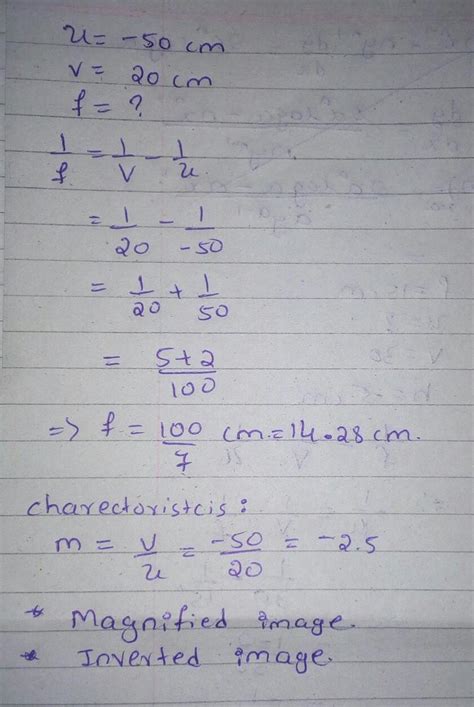 u = -50 cm
v = 20 cm
f = ?
1/f = 1/v - 1/u
= 1/20 - 1/-50
= 1/20 + 1/50
= 5+2/100
=> f = 100/7 cm = 14.28 cm.
charectoristcis :
m = v/u = -50/20 = -2.5
* Magnified image.
* Inverted image.